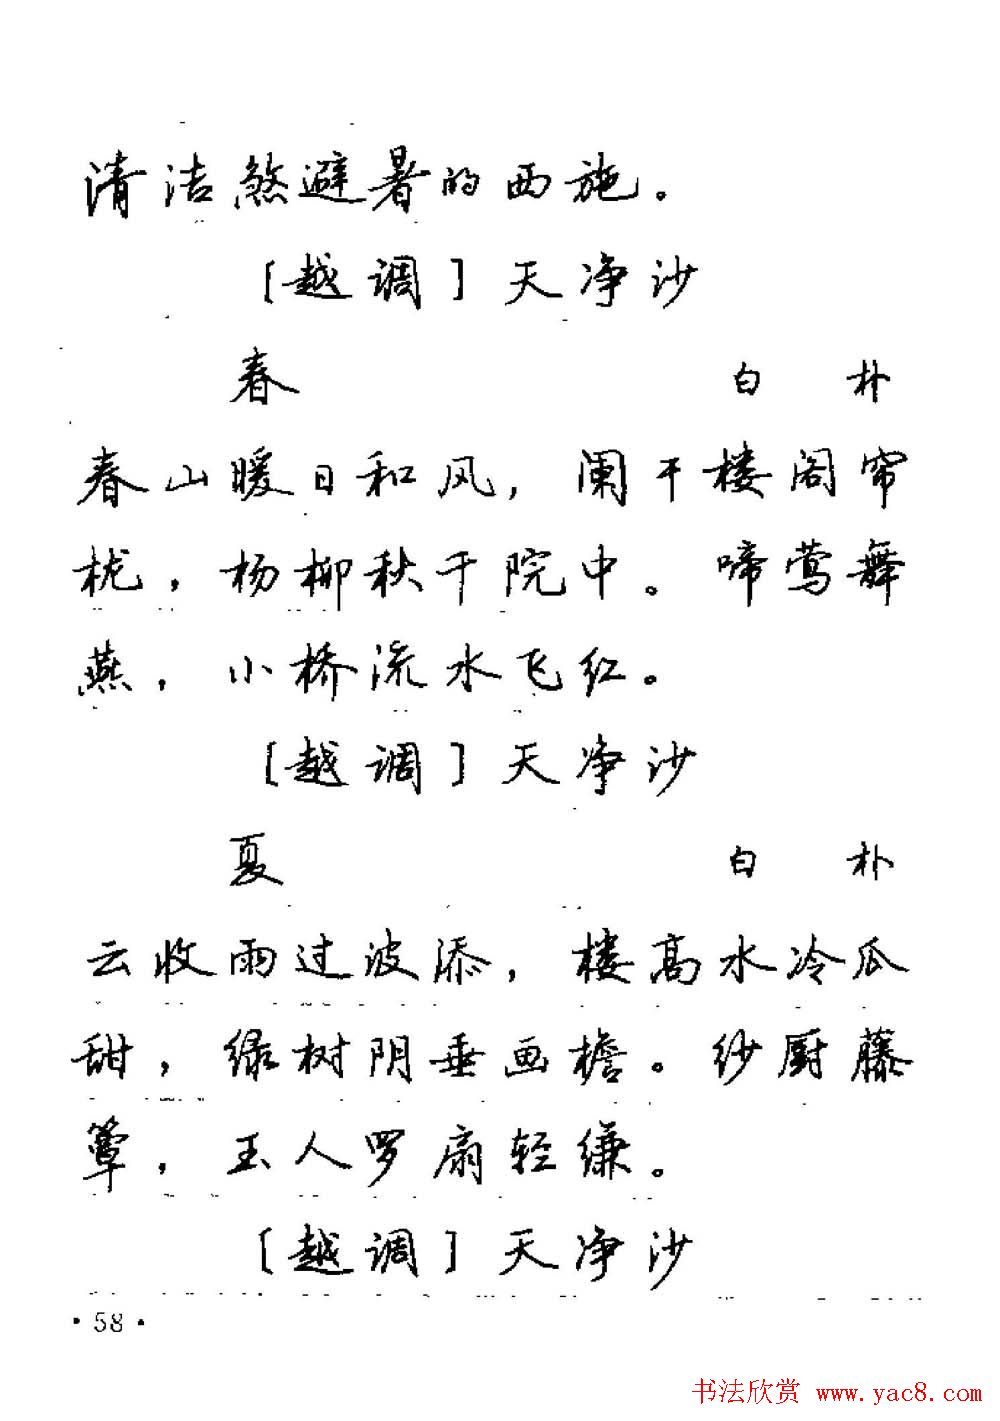 清洁煞避暑的西施。
[越调]天净沙
春 白 朴
春山暖日和风，阑干楼阁帘
栊，杨柳秋千院中。啼莺舞
燕，小桥流水飞红。
[越调]天净沙
夏 白 朴
云收雨过波添，楼高水冷瓜
甜，绿树阴垂画檐。纱厨藤
簟，玉人罗扇轻缣。
[越调]天净沙
·58·
书法欣赏 www.yac8.com